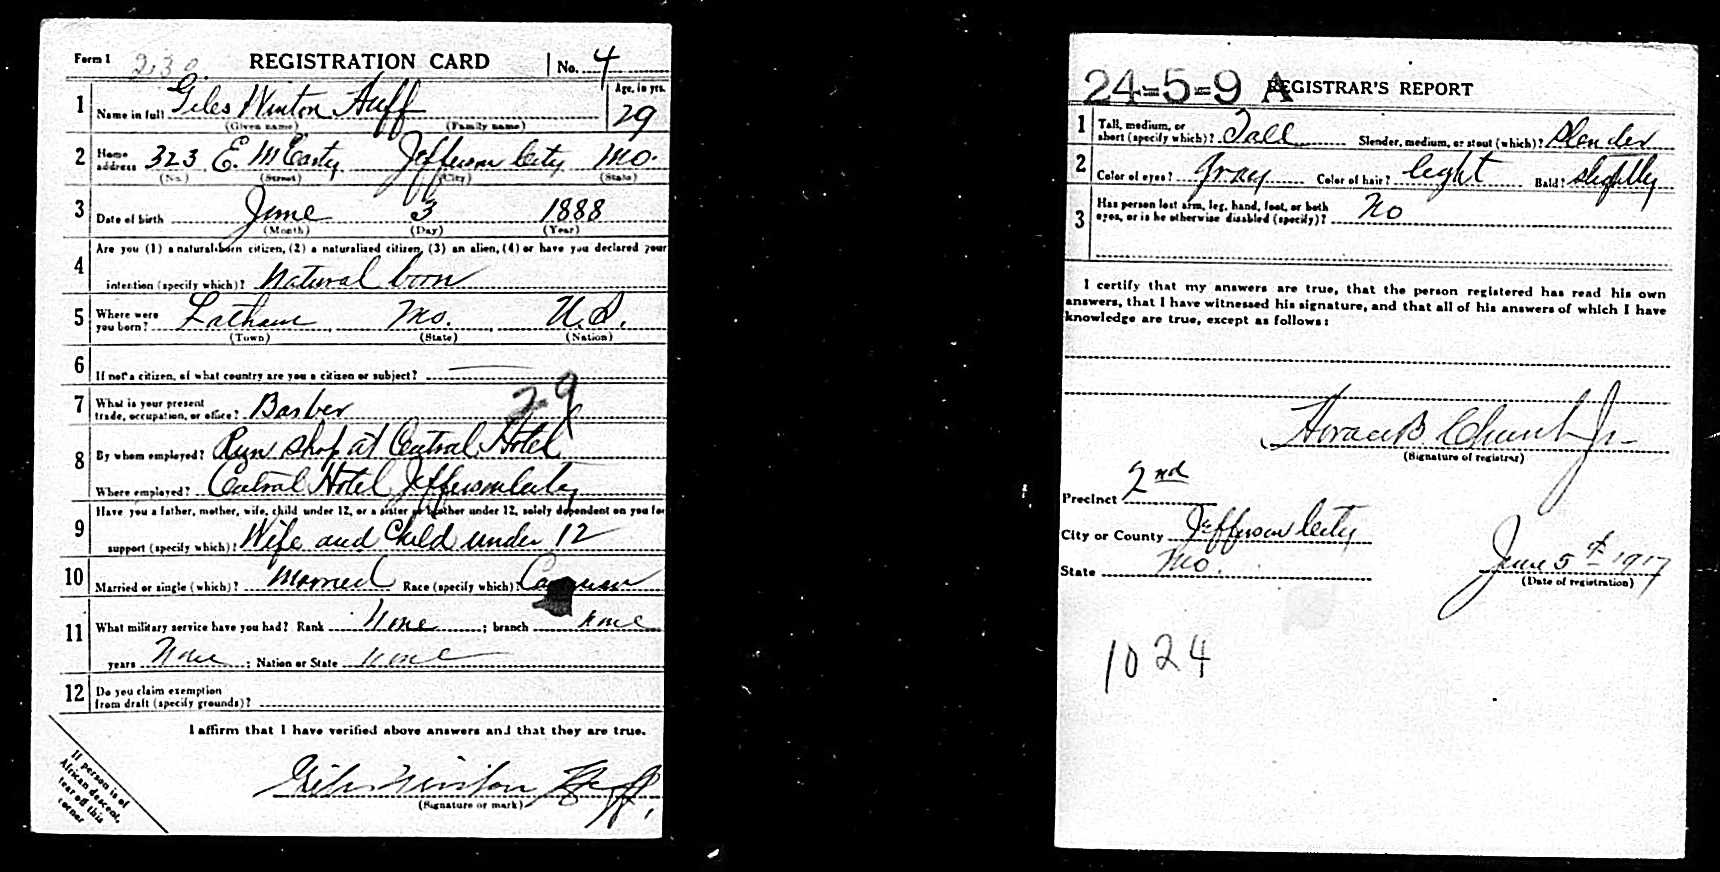 Form 1 232. REGISTRATION CARD No. 4
1 Name in full Giles Winton Huff Age, in yrs. 29
(Given name) (Family name)
2 Home address 323 E. McCarty Jefferson City Mo.
(No.) (Street) (City) (State)
3 Date of birth June 3 1888
(Month) (Day) (Year)
4 Are you (1) a natural-born citizen, (2) a naturalized citizen, (3) an alien, (4) or have you declared your
intention (specify which)? Natural born
5 Where were you born? Latham Mo. U.S.
(Town) (State) (Nation)
6 If not a citizen, of what country are you a citizen or subject?
7 What is your present trade, occupation, or office? Barber 29
8 By whom employed? Run shop at Central Hotel
Where employed? Central Hotel Jefferson City
9 Have you a father, mother, wife, child under 12, or a sister or brother under 12, solely dependent on you for
support (specify which)? Wife and Child under 12
10 Married or single (which)? Married Race (specify which)? Caucasian
11 What military service have you had? Rank None ; branch None
years None ; Nation or State None
12 Do you claim exemption
from draft (specify grounds)?
I affirm that I have verified above answers and that they are true.
Giles Winton Huff.
(Signature or mark)
If person is of
African descent,
tear off this
corner
24-5-9 A REGISTRAR'S REPORT
1 Tall, medium, or short (specify which)? Tall Slender, medium, or stout (which)? Slender
2 Color of eyes? Gray Color of hair? light Bald? slightly
3 Has person lost arm, leg, hand, foot, or both
eyes, or is he otherwise disabled (specify)? No
I certify that my answers are true, that the person registered has read his own
answers, that I have witnessed his signature, and that all of his answers of which I have
knowledge are true, except as follows:
Horace B Church Jr
(Signature of registrar)
Precinct 2nd
City or County Jefferson City
State Mo. June 5th 1917
(Date of registration)
1024